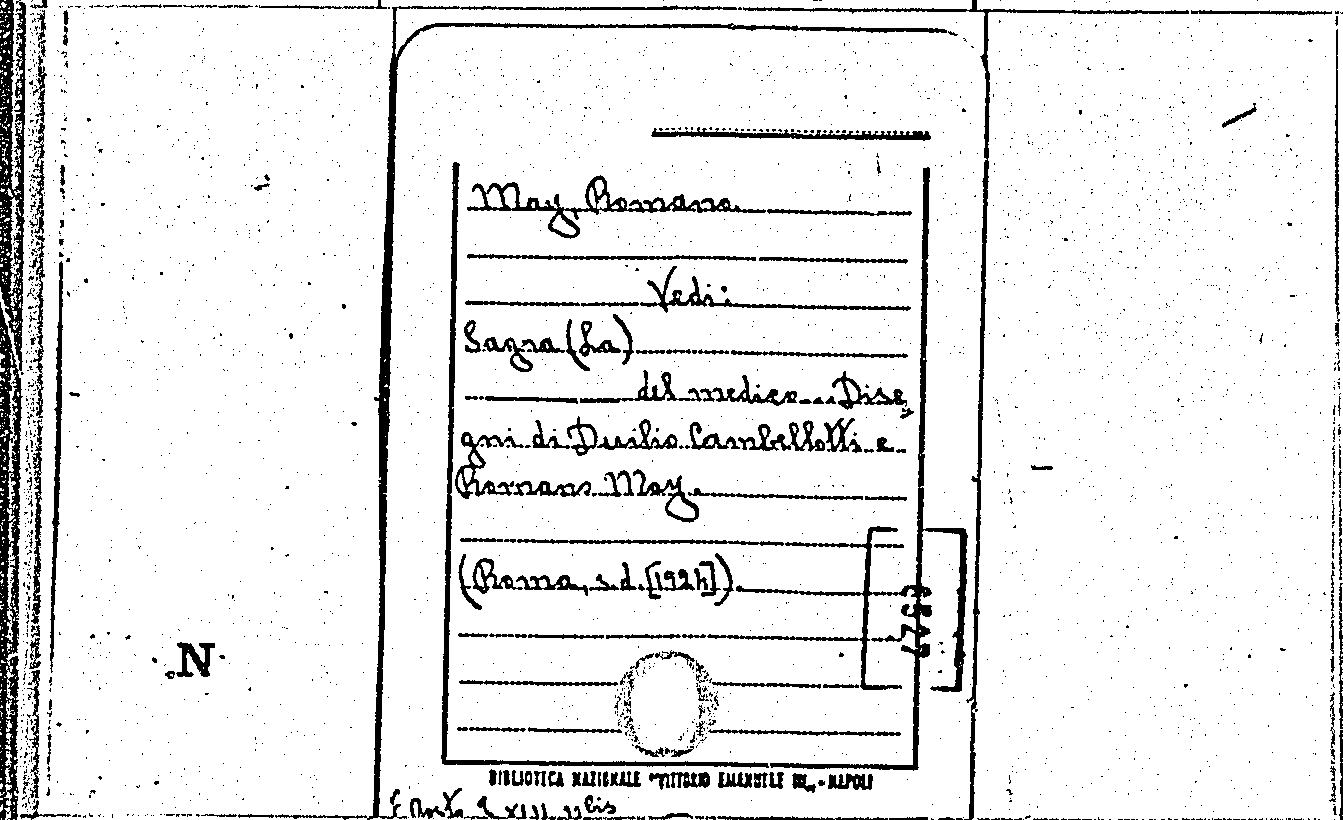 May, Romana.
Vedi:
Sagra (La)
del medico... Dise,
gni di Duilio Cambellotti e
Romano May.
(Roma, s.d. [1924]).
N
BIBLIOTECA NAZIONALE "VITTORIO EMANUELE III" - NAPOLI